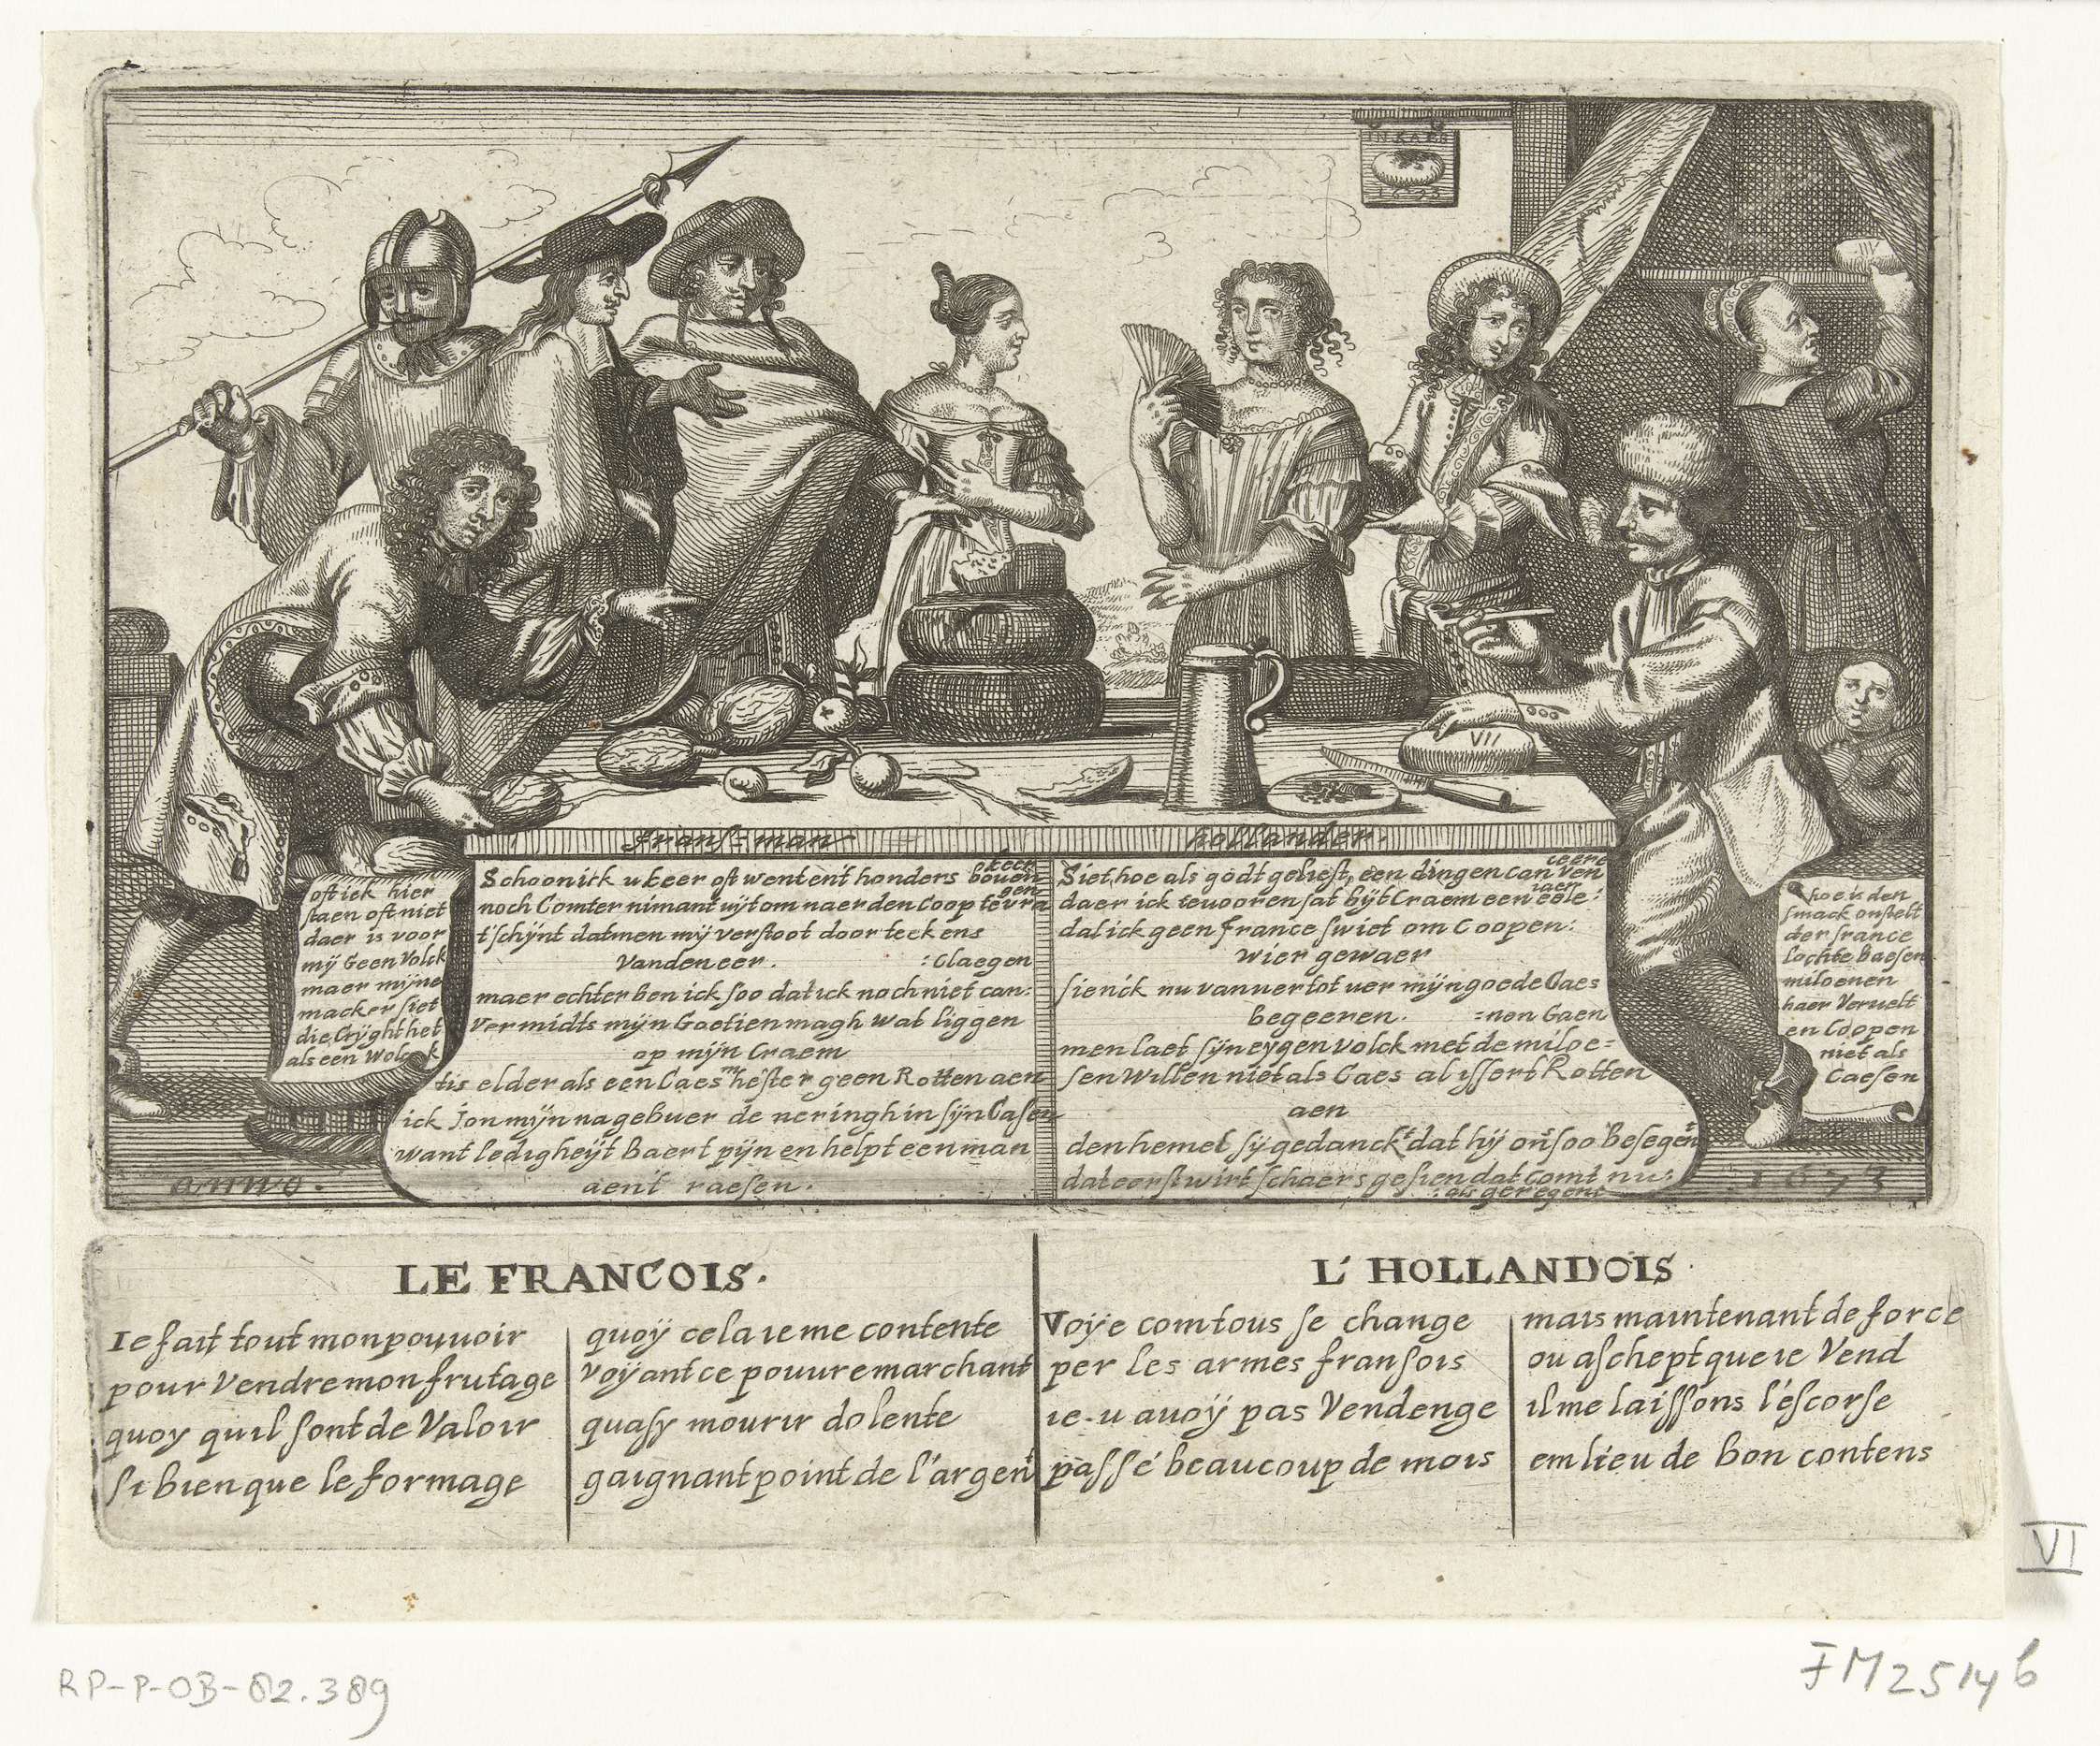 KAES
VII
frans-man
hollander.
oft ick hier
staen oft niet
daer is voor
mij Geen Volck
maer mijne
macker siet
die Crijght het
als een Wolck
keer
Schoon ick u keer oft went ent honders bouen
gen
noch Comter nimant uijt om naer den Coop te vra
t'schijnt datmen mij verstoot door teekens
Vanden eer. :Claegen
maer echter ben ick soo dat ick noch niet can:
Vermidts mijn Goetien magh wat liggen
op mijn Craem
tis elder als een Caes m hester geen Rotten aen
ick Jon mijn nagebuer de neringh in sijn Casen
want ledigheijt Baert pijn en helpt een man
aent raesen.
ceere
Siet, hoe als godt geliest, een dingen can Ven
daer ick teuooren sat bijt Craem een eele:
dat ick geen france swiet om Coopen:
wier gewaer
sien ick nu van uer tot uer mijn goede Caes
begeeren. :nen Gaen
men laet sijn eygen volck met de miloe=
sen Willen niet als Caes al isser t Rotten
aen
den hemel sij gedanckt dat hij ons soo besegent
dat eerst wirt schaers gesien dat comt nu:
:als geregent
hoe is den
smack onstelt
der france
lochte Baesen
miloenen
haer Veruelt
en Coopen
niet als
Caesen
anno.
1673
LE FRANCOIS.
Ie fait tout mon pouuoir
pour Vendre mon frutage
quoy quil sont de Valoir
si bien que le formage
quoÿ cela ie me contente
Voÿant ce pouure marchant
quasy mourir dolente
gaignant point de l'argent
L' HOLLANDOIS
Voÿe com tous se change
per les armes fransois
ie-u auoÿ pas Vendenge
passé beaucoup de mois
mais maintenant de force
ou aschept que ie Vend
il me laissons l'éscorse
em lieu de bon contens
VI
RP-P-OB-82.389
FM2514b